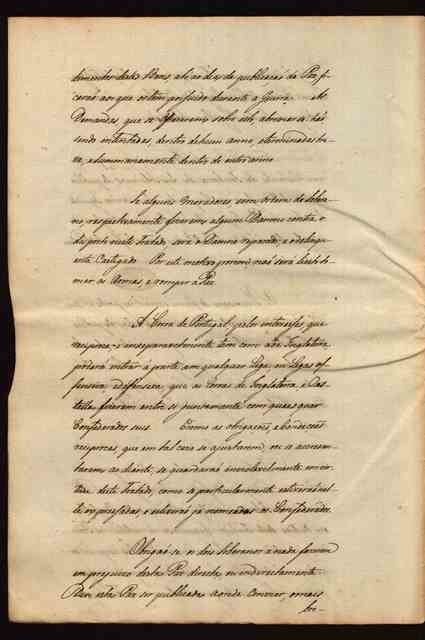 dimentos destes Bens, até ao dia da publicação da Paz, fi-
carão aos que os tem possuido durante a Guerra. As
Demandas, que se fizerem sobre isto, abonarse hão
sendo intentadas, dentro de hum anno, e terminadas bre-
ve, e summariamente dentro de outro anno
Se alguns Moradores sem ordem do Sobera-
no, respectivamente fizerem algum Damno contra o
disposto neste Tratado, será o Damno reparado, e o delinqu-
ente Castigado. Por este motivo porem não será licito to-
mar as Armas, e romper a Paz
A Coroa de Portugal, pelos interesses, que
reciproca, e inseparavelmente tem com a de Inglaterra
poderá entrar á parte em qualquer Liga, ou Ligas of-
fensiva, e deffensiva, que as Coroas de Inglaterra, e Cas-
tella fizerem entre si juntamente com quaes quer
Confederados seus Ecomo as obrigações, e Condiçoes
reciprocas, que em tal cazo se ajustarem, ou se accrescen-
tarem ao diante, se guardarão inviolavelmente em vir-
tude deste Tratado, como se particularmente estiverão nel-
le expressadas, e estiverão já nomeados os Confederados.
Obrigão-se os dois Soberanos a nada fazerem
em prejuizo desta Paz directa, ou indirectamente.
Para esta Paz ser publicada aonde Convier, o mais
bre-